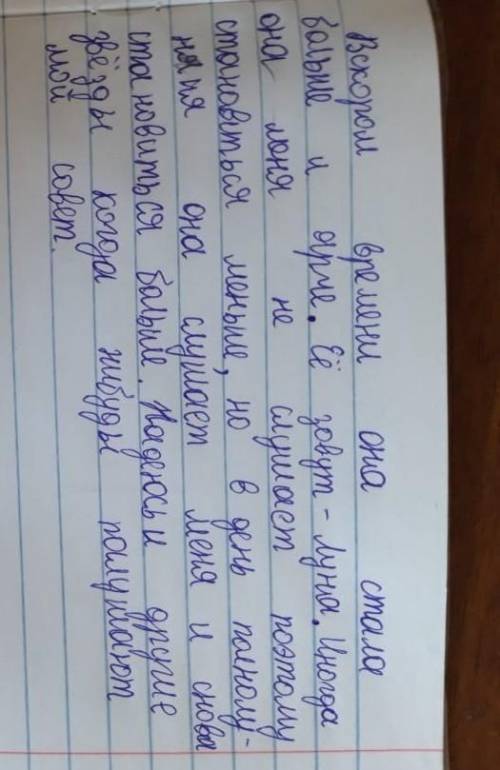 Вскором времени она стала
больше и ярче. Её зовут - Луна. Иногда
она меня не слушает поэтому
становиться меньше, но в день полнолу-
ния она слушает меня и снова
становиться больше. Надеюсь и другие
звёзды когда нибудь послушают
мой совет.